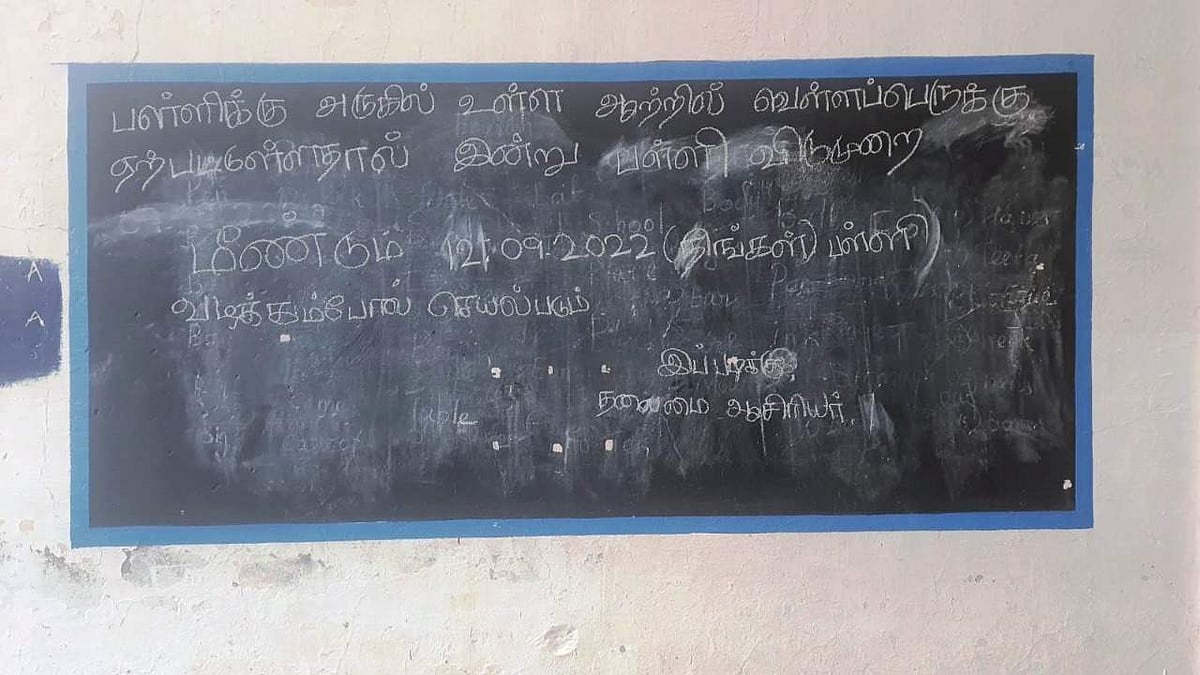 பள்ளிக்கு அருகில் உள்ள ஆற்றில் வெள்ளப்பெருக்கு
ஏற்பட்டுள்ளதால் இன்று பள்ளி விடுமுறை
மீண்டும் 12.09.2022 (திங்கள்) பள்ளி
வழக்கம்போல் செயல்படும்
இப்படிக்கு,
தலைமை ஆசிரியர்.
A
A